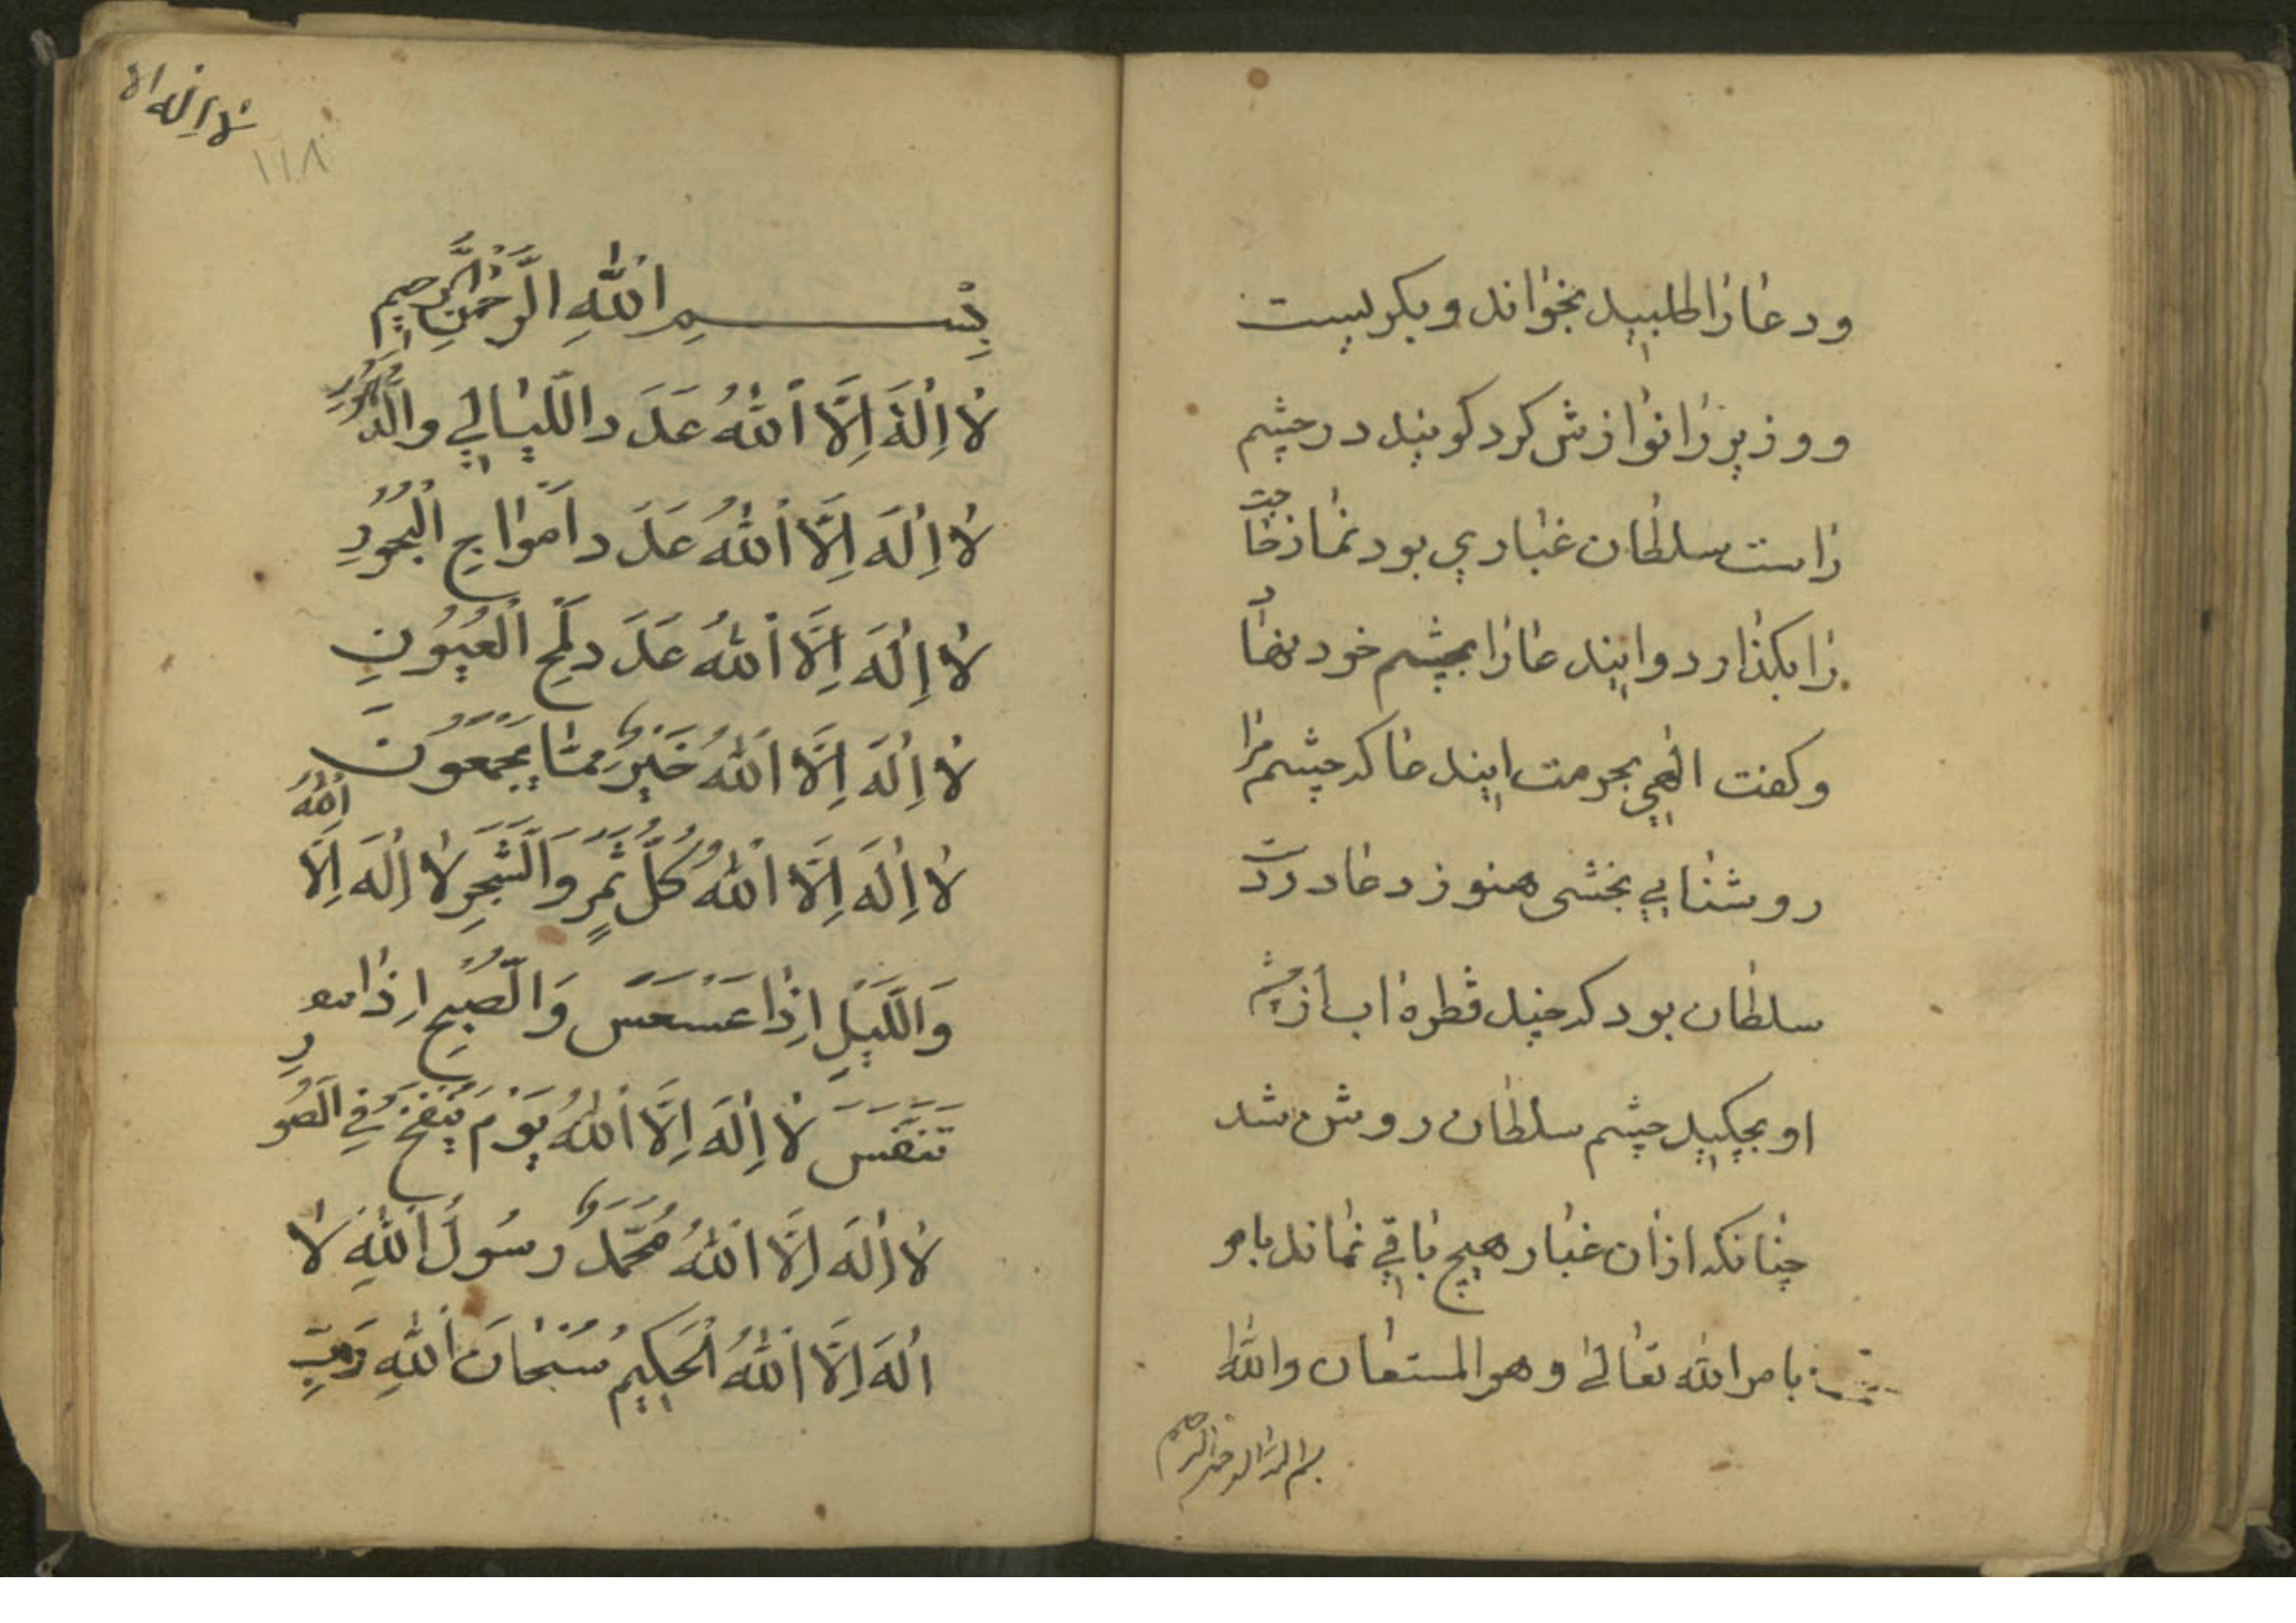 ودعا را طلبید بخواند و بکریست
ووزیر را نوازش کرد کویند در چشم
راست سلطان غباری بود نماز خاجت
را بکذارد و ایند عا را بچشم خود نهاد
وکفت الهی بحرمت ایند عا که چشم مرا
روشنایی بخشی هنوز دعا در دست
سلطان بود که چند قطره اب از چشم
او بچکید چشم سلطان روشن شد
چنانکه ازان غبار هیچ باقی نماند بامر
بامر الله تعالی وهو المستعان والله
بسم الله الرحمن الرحیم
لا اله الا
١١٨
بِسْمِ اللهِ الرَّحْمٰنِ الرَّحِیمِ
لا اِلٰهَ اِلَّا اللهُ عَدَدَ اللَّیالِي والدُّهُورِ
لا اِلٰهَ اِلَّا اللهُ عَدَدَ اَمْوَاجِ الْبُحُورِ
لا اِلٰهَ اِلَّا اللهُ عَدَدَ لَمْحِ الْعُیُونِ
لا اِلٰهَ اِلَّا اللهُ خَیْرٌ مِمَّا یَجْمَعُونَ
لا اِلٰهَ اِلَّا اللهُ كُلُّ ثَمَرٍ وَالشَّجَرِ لا اِلٰهَ اِلَّا اللهُ
وَاللَّیْلِ اِذَا عَسْعَسَ وَالصُّبْحِ اِذَا
تَنَفَّسَ لا اِلٰهَ اِلَّا اللهُ یَوْمَ یُنْفَخُ فِي الصُّورِ
لا اِلٰهَ اِلَّا اللهُ مُحَمَّدٌ رَسُولُ اللهِ لا
اِلٰهَ اِلَّا اللهُ الْحَکِیمُ سُبْحَانَ اللهِ رَبِّ